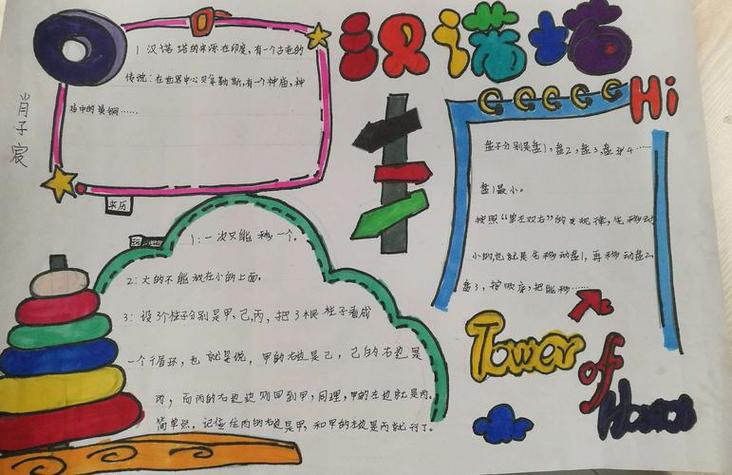 汉诺塔
肖子宸
1 汉诺塔的来源在印度,有一个古老的
传说:在世界中心贝拿勒斯,有一个神庙,神
庙中的黄铜……
来历
Hi
盘子分别是盘1,盘2,盘3,盘4……
盘1最小。
按照"单左双右"的 规律,先移动
小的,也就是先移动盘1,再移动盘2、
盘3,按顺序,把能移……
1:一次只能移一个。
2:大的不能放在小的上面。
3:设3个柱子分别是甲、己,丙,把3根柱子看成
一个循环,也就是说,甲的右边是己,己的右边是
丙,而丙的右边 则回到甲,同理,甲的左边就是丙。
简单点,记住丙的右边是甲,和甲的左边是丙就行了。
Tower
of
Hanoi